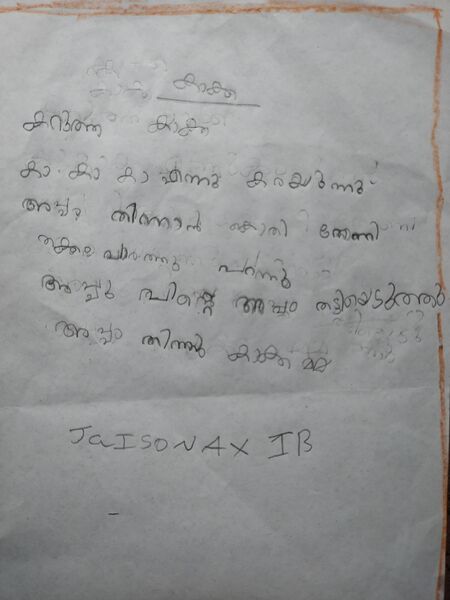 കാക്ക
കറുത്ത കാക്ക
കാ കാ കാ എന്നു കരയുന്നു
അപ്പം തിന്നാൻ കൊതി തോന്നി
പറന്നു
അപ്പു അപ്പം തട്ടിയെടുത്തു
അപ്പം തിന്നു കാക്ക
JaISON AX IB